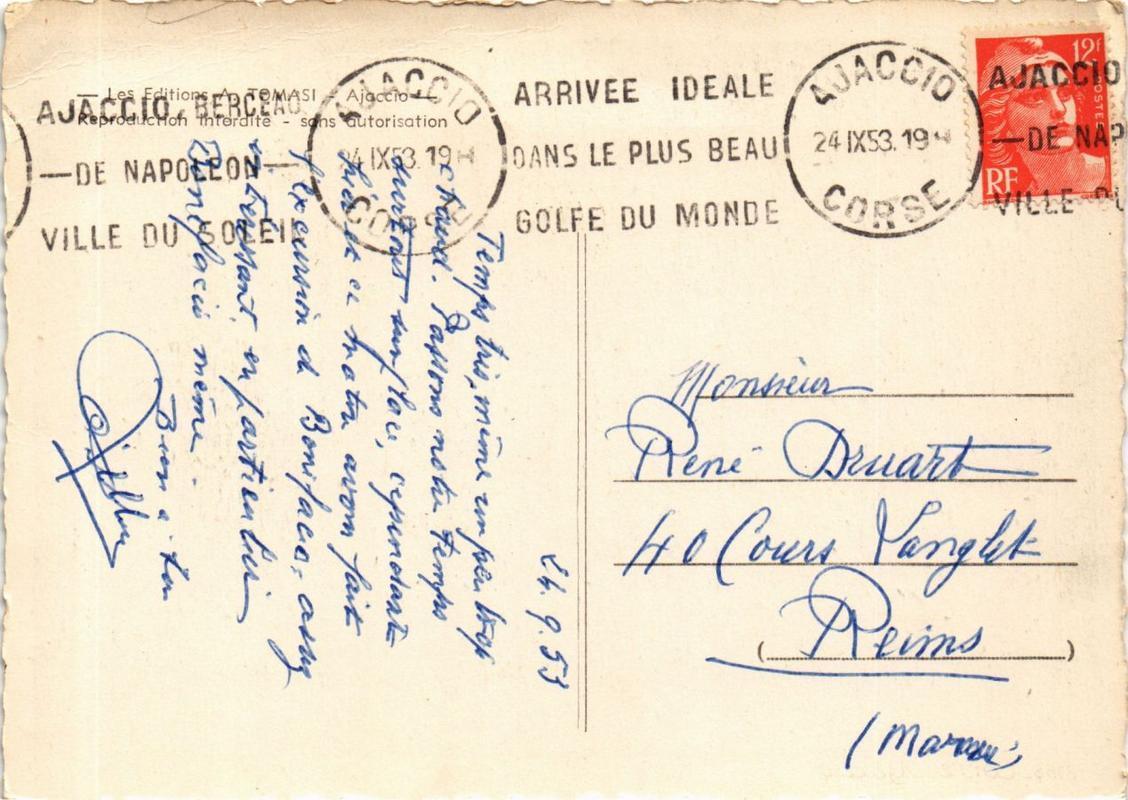 — Les Editions A. TOMASI - Ajaccio —
Reproduction interdite - sans autorisation
AJACCIO, BERCEAU
—DE NAPOLEON—
VILLE DU SOLEIL
AJACCIO
24 IX53. 19 H
CORSE
ARRIVEE IDEALE
DANS LE PLUS BEAU
GOLFE DU MONDE
AJACCIO
24 IX53. 19 H
CORSE
12f
POSTES
RF
AJACCIO
—DE NAP
VILLE DU
24.9.53
Temps très, même un peu trop
chaud. Passons notre temps
surtout sur l'eau, cependant
ce matin avons fait
l'excursion de Bonifacio, assez
intéressant, en particulier
Bonifacio même.
Bien à toi
Monsieur
René Druart
40 Cours Langlet
Reims
(Marne)